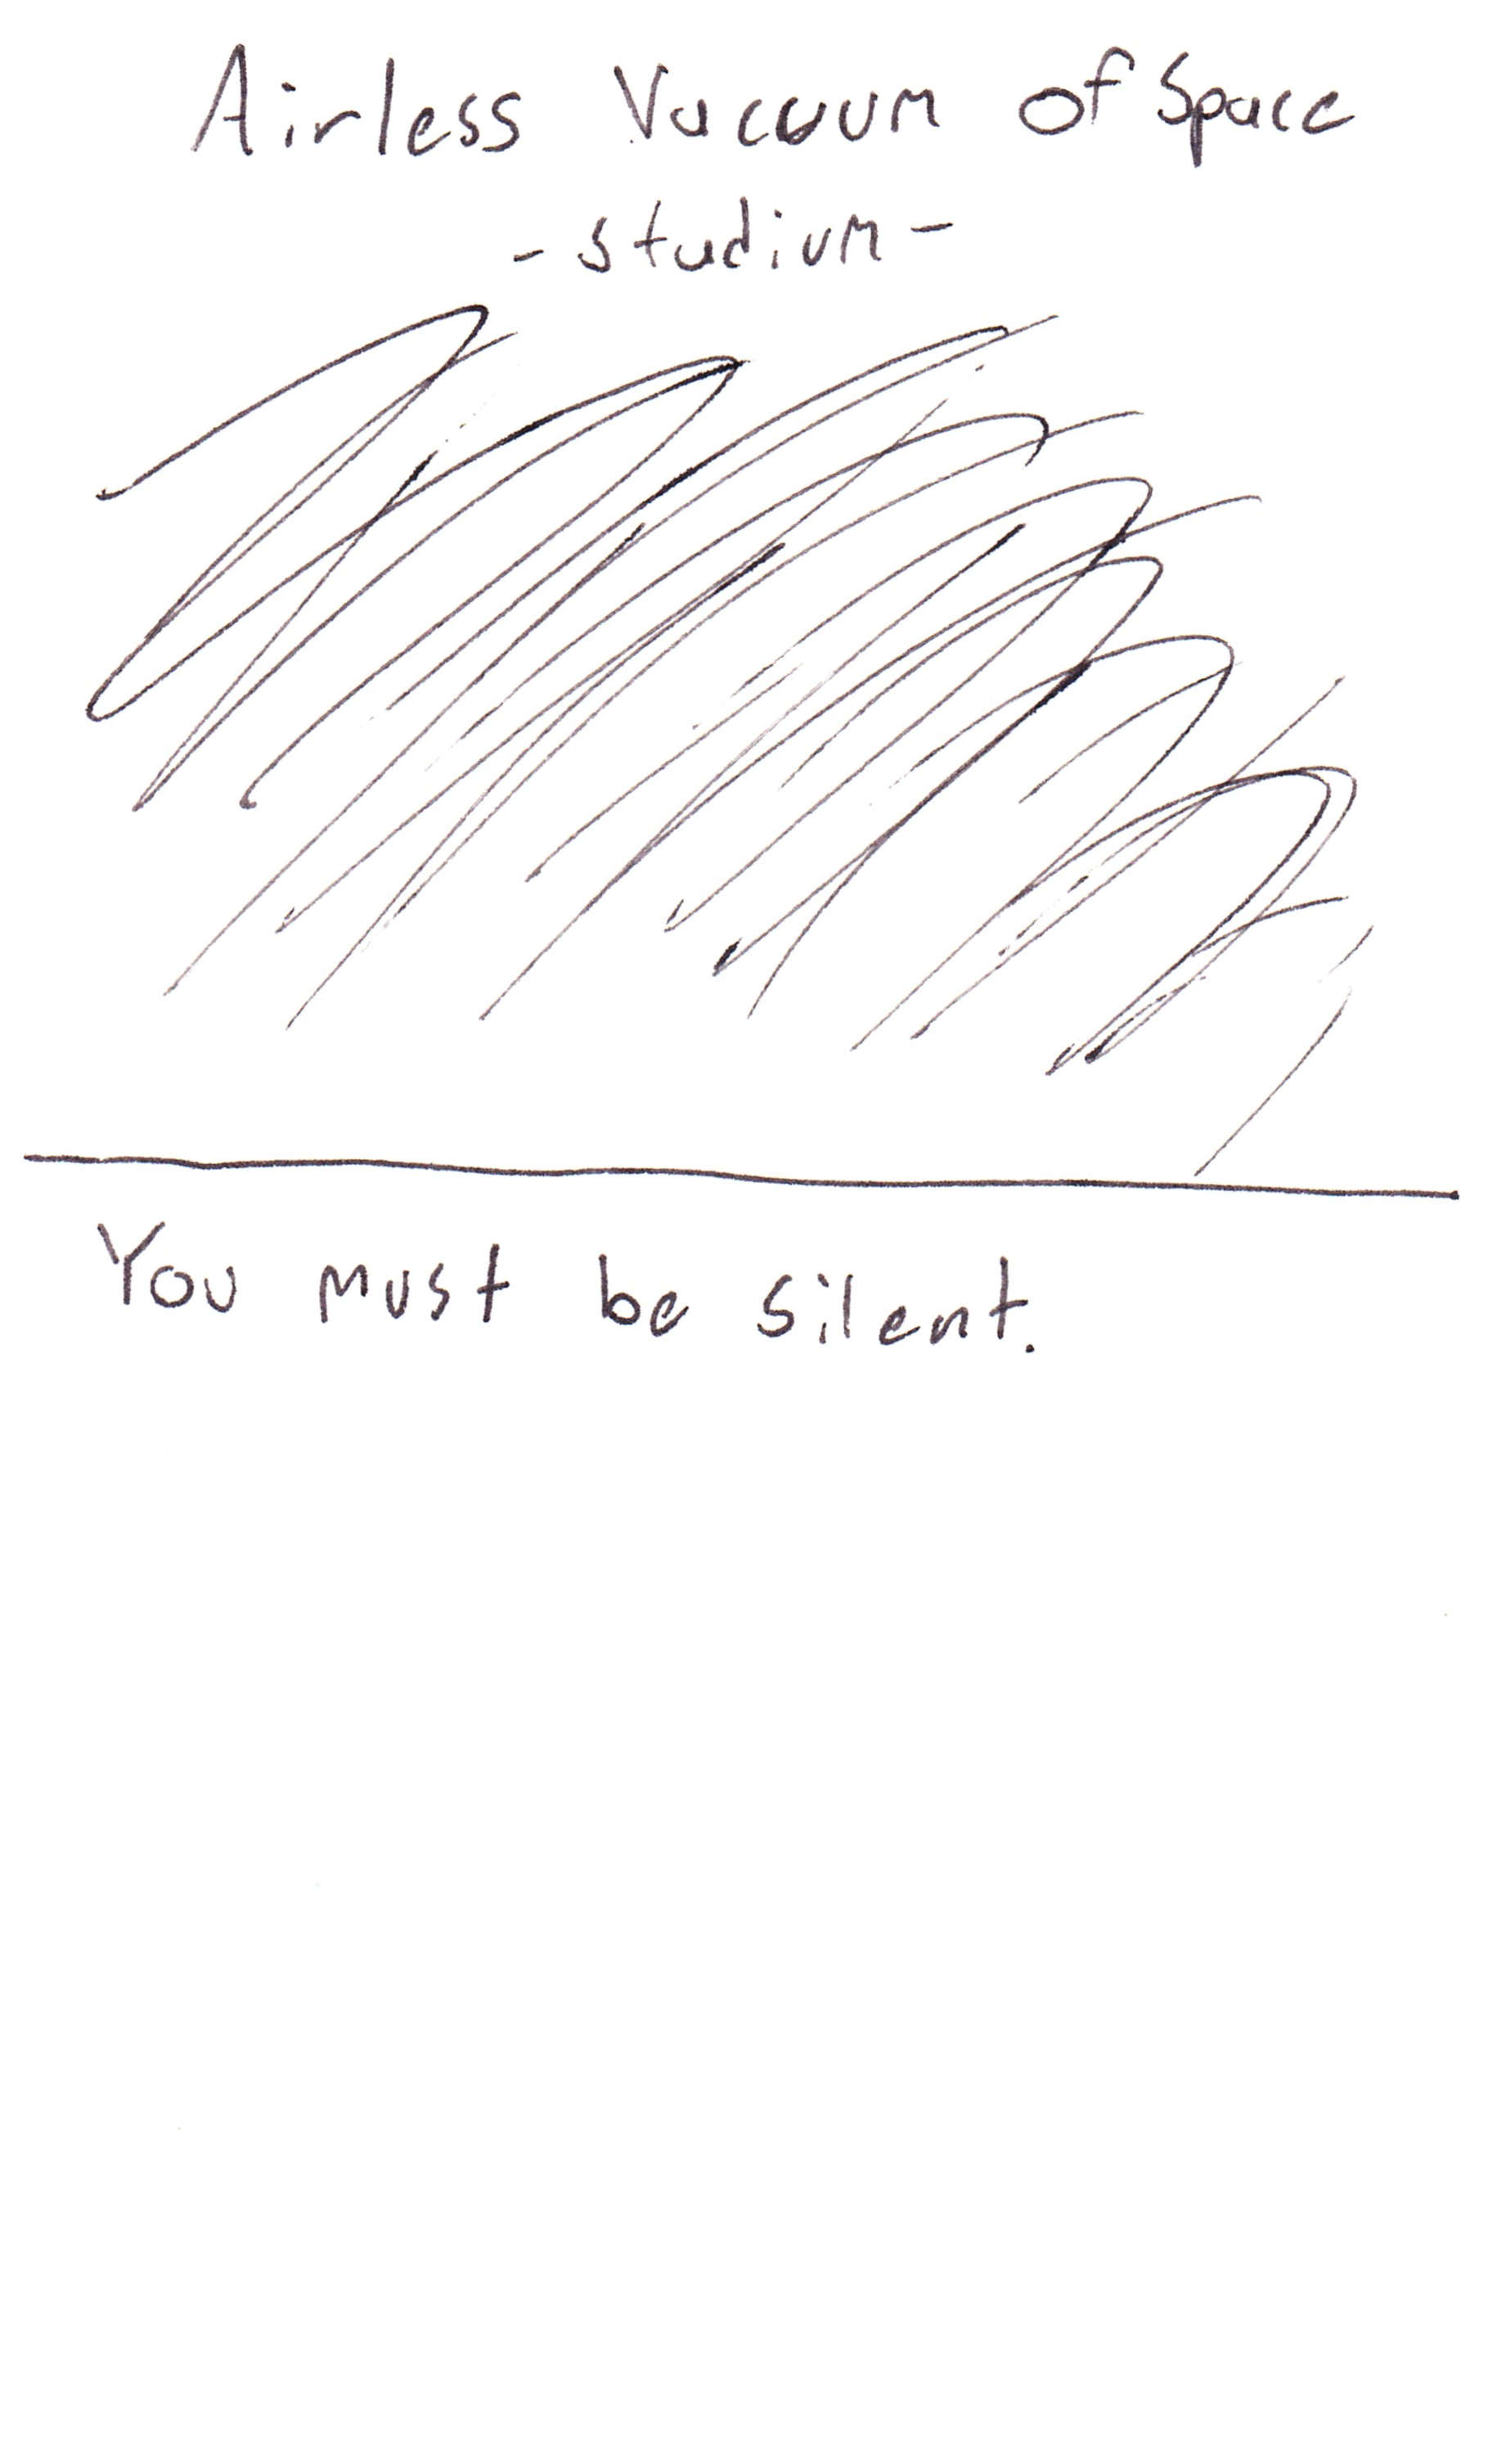 Airless Vacuum of Space
- Studium -
You must be silent.